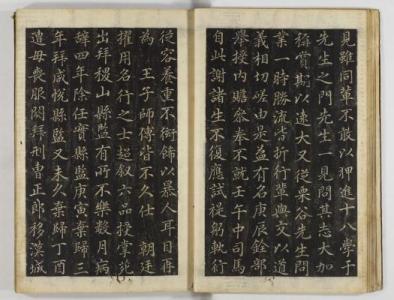 見雖同輩不敢以狎進十八學于
先生之門先生一見問其志大加
稱賞期以遠大又從栗谷先生問
業一時勝流皆折行輩與交以道
義相切嗟由是益有名庚辰銓部
舉授內贍參奉不就壬午中司馬
自此謝諸生不復應試從躬執行
從容養重不衒飾以暴人耳目再
為 王子師傅皆不久仕 朝廷
擢用名行之士超叙六品授掌苑
出拜稷山縣監有所不樂數月病
辭四年除任實縣監庚寅棄歸三
年拜咸悅縣監又未久棄歸丁酉
遭母喪服闋拜刑曹正郎移漢城